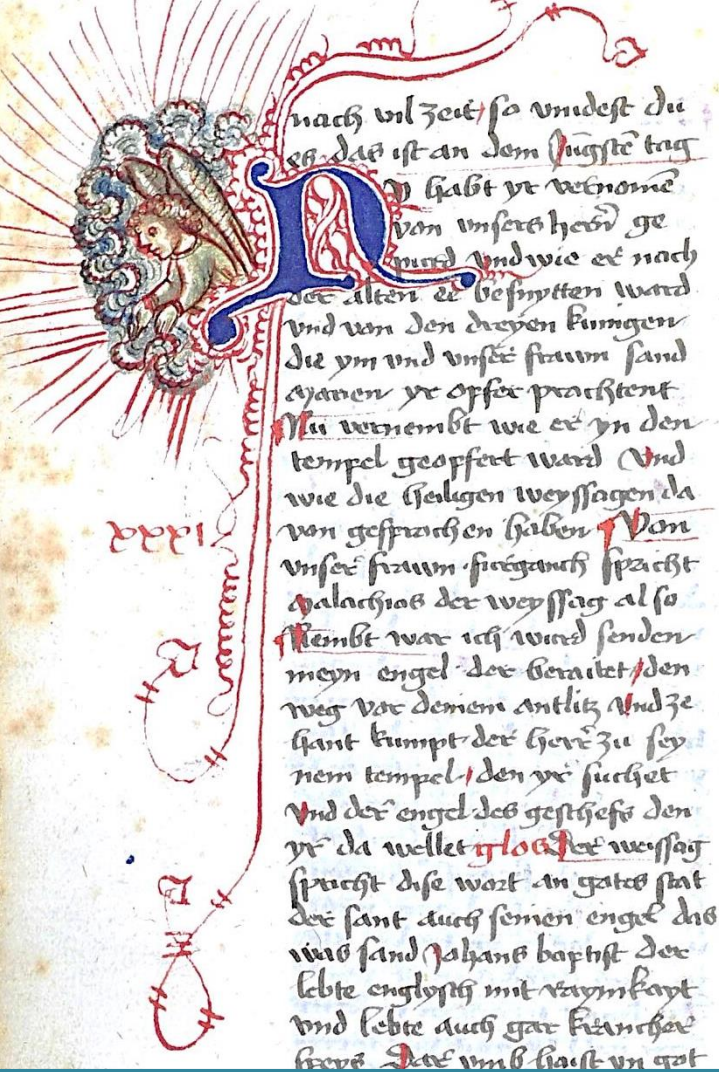 nach vil zeit / so vindest du
es · das ist an dem Jūgstē tag
NU habt yr vernomē
von unsers herñ ge
purd Und wie er nach
der alten ee besnytten ward
vnd von den dreyen kunigen
die ym vnd vnser frawn sand
Marien yr opfer prachtent
Nu vernembt wie er yn den
tempel geopfert ward Vnd
wie die heiligen weyssagen da
von gesprochen haben Von
XXXI
vnser frawn · fürganch spricht
Malachias der weyssag also
Nembt war ich wird senden
meyn engel · der beraitet / den
weg vor deinem antlitz Vnd ze
hant kumpt · der herr zu sey
nem tempel · / den yr suchet
Vnd der engel · des gescheffs den
yr da wellet glos Der weissag
spricht dise wort an gotes stat
der sant auch seinen engel das
was sand Johans baptist der
lebte englysch mit raynikayt
vnd lebte auch gar kranckher
speys Dar vmb haist yn got